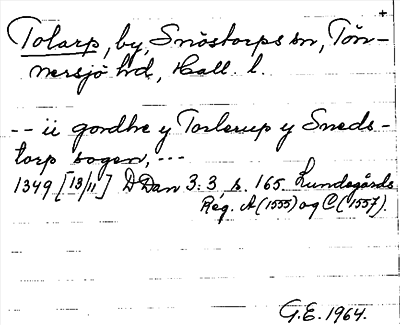 +
Tolarp, by, Snöstorps sn, Tön-
nersjö hd, Hall. l.
-- ii gordhe y Torlerup y Sneds-
torp sogen, ---
1349 [13/11] DDan 3:3 s. 165. Lundegårds
Reg. A (1555) og C (1557).
G.E. 1964.